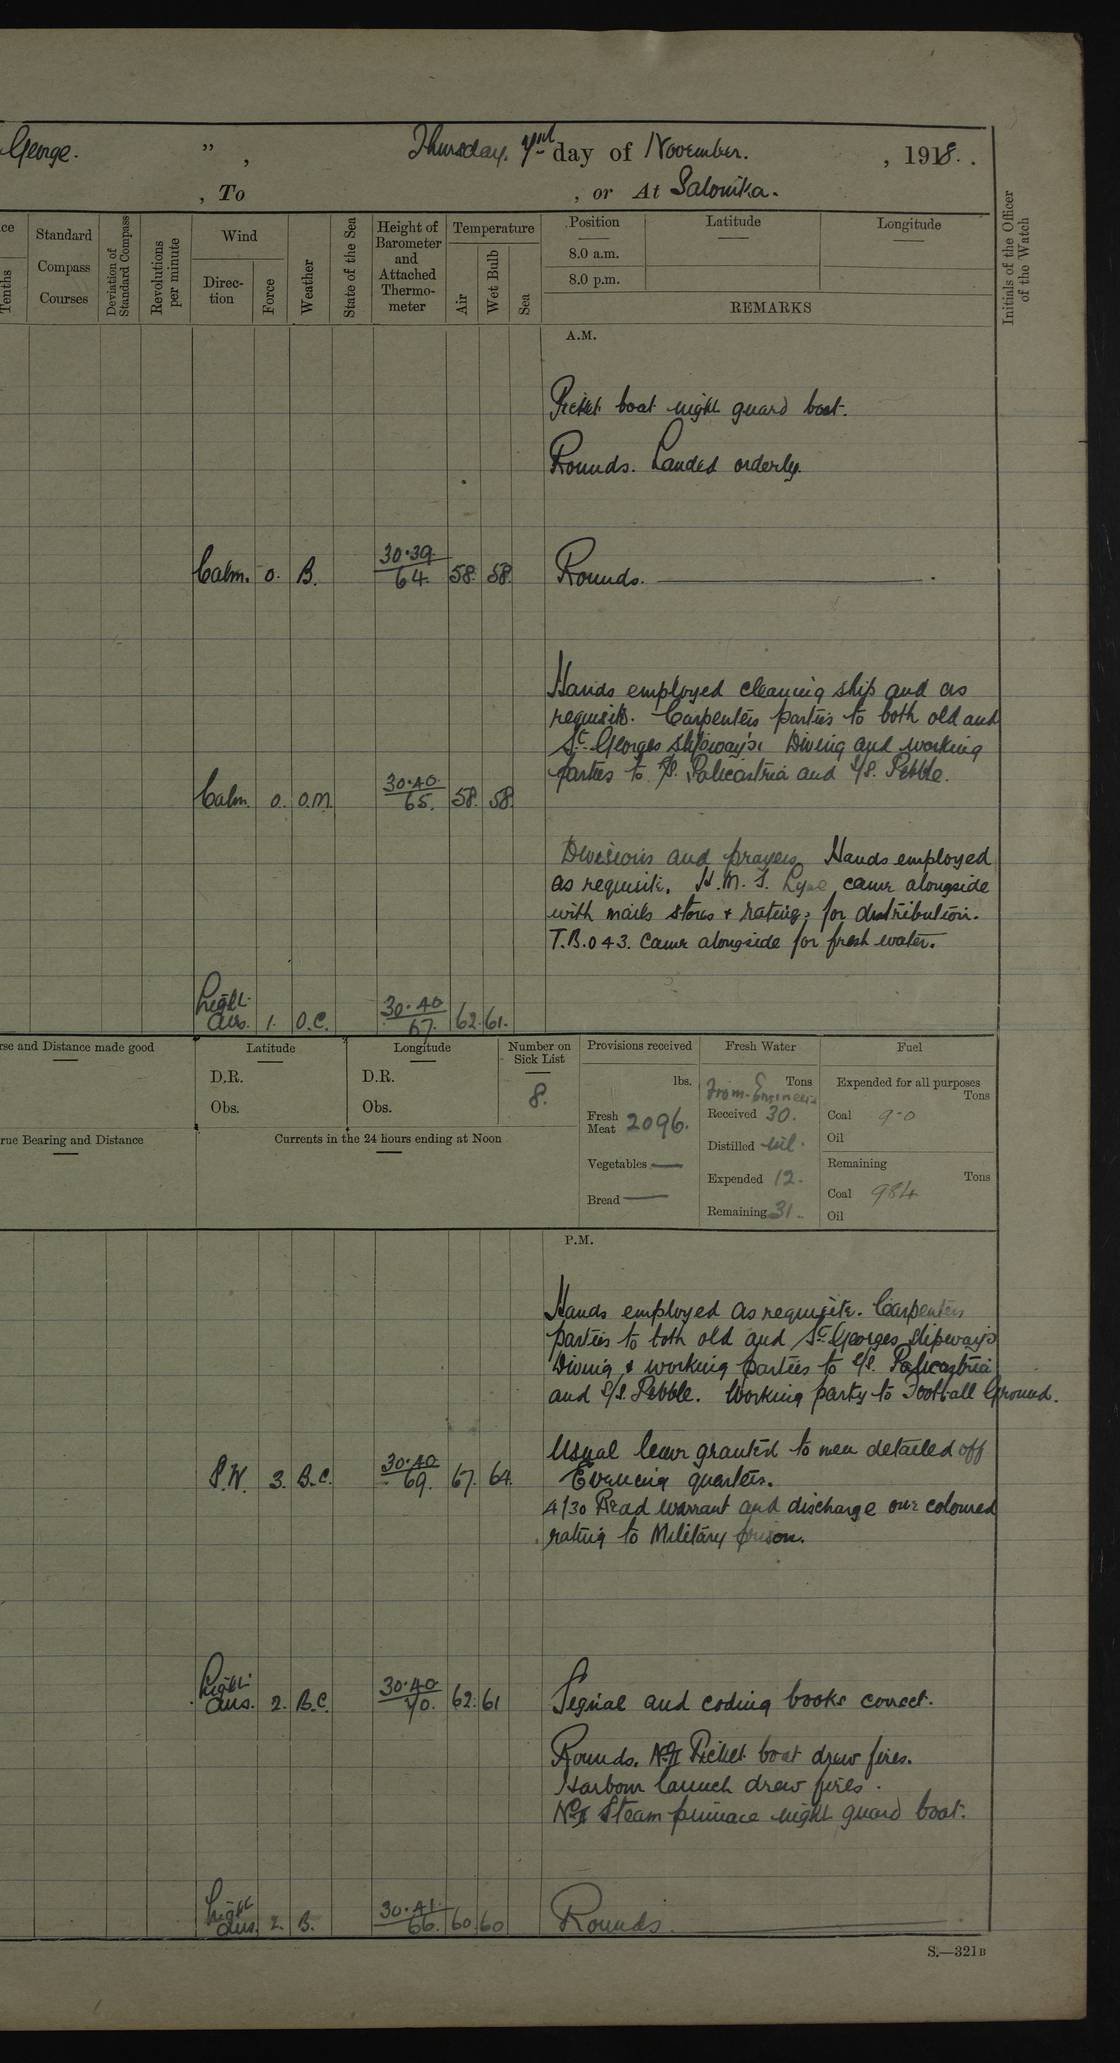 George. " , Thursday. 7nd day of November. , 1918. .
, To , or At Salonika.
ce
Tenths
Standard Compass Courses
Deviation of Standard Compass
Revolutions per minute
Wind
Direction
Force
Weather
State of the Sea
Height of Barometer and Attached Thermometer
Temperature
Air
Wet Bulb
Sea
Position Latitude Longitude
8.0 a.m.
8.0 p.m.
REMARKS
Initials of the Officer of the Watch
A.M.
Picket boat night guard boat.
Rounds. Landed orderly.
Calm. 0. B. 30.39 64. 58. 58. Rounds.
Hands employed cleaning ship and as
requisite. Carpenters parties to both old and
St. Georges slipway's. Diving and working
parties to S/S. Policastria and S/S. Pebble.
Calm. 0. O.M. 30.40 65. 58. 58.
Divisions and prayers Hands employed
as requisite. H.M.S. came alongside
with mails stores + ratings for distribution.
T.B.043. came alongside for fresh water.
Light airs. 1. O.C. 30.40 67. 62. 61.
rse and Distance made good
Latitude
D.R.
Obs.
Longitude
D.R.
Obs.
Number on Sick List
8.
Provisions received
lbs.
Fresh Meat 2096.
Vegetables —
Bread —
Fresh Water
From Engineers Tons
Received 30.
Distilled nil.
Expended 12.
Remaining 31.
Fuel
Expended for all purposes
Tons
Coal 9-0
Oil
Remaining
Tons
Coal 984
Oil
rue Bearing and Distance
Currents in the 24 hours ending at Noon
P.M.
Hands employed as requisite. Carpenters
parties to both old and St. Georges slipway's
Diving & working parties to S/S. Policastria
and S/S. Pebble. Working party to Football Ground.
Usual leave granted to men detailed off
S.W. 3. B.C. 30.40 69. 67. 64. Evening quarters.
4/30 Read warrant and discharge one coloured
rating to Military prison.
Light airs. 2. B.C. 30.40 70. 62. 61 Signal and coding books correct.
Rounds. No II Picket boat drew fires.
Harbour launch drew fires.
No I Steam pinnace night guard boat.
Light airs. 2. B. 30.41. 66. 60. 60 Rounds.
S.—321B